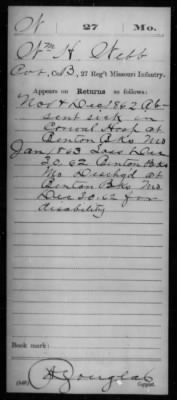 W 27 Mo.
Wm H. Webb
Cor, Co. B, 27 Reg't Missouri Infantry.
Appears on Returns as follows:
Nov & Dec 1862 Ab-
sent sick in
Conval Hosp at
Benton Bks Mo
Jan 1863 Loss Dec
30, 62 Benton Bks
Mo Dischgd at
Benton Bks Mo
Dec 30, 62 for
disability
Book mark:
Douglas
Copyist.